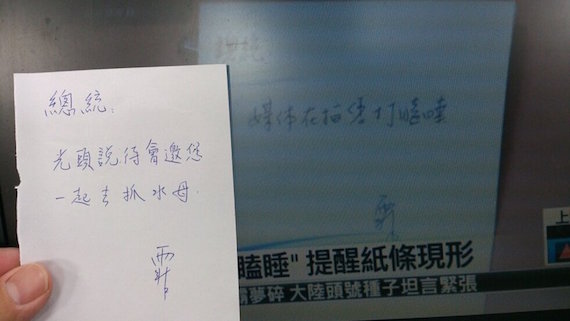 總統：
光頭說待會邀您
一起去抓水母．
媒体在拍您打瞌睡
瞌睡" 提醒紙條現形
夢碎 大陸頭號種子坦言緊張
上